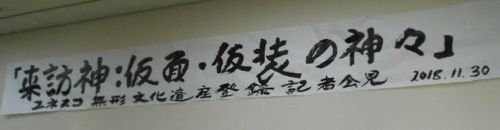 「来訪神:仮面・仮装の神々」
ユネスコ無形文化遺産登録記者会見 2018.11.30